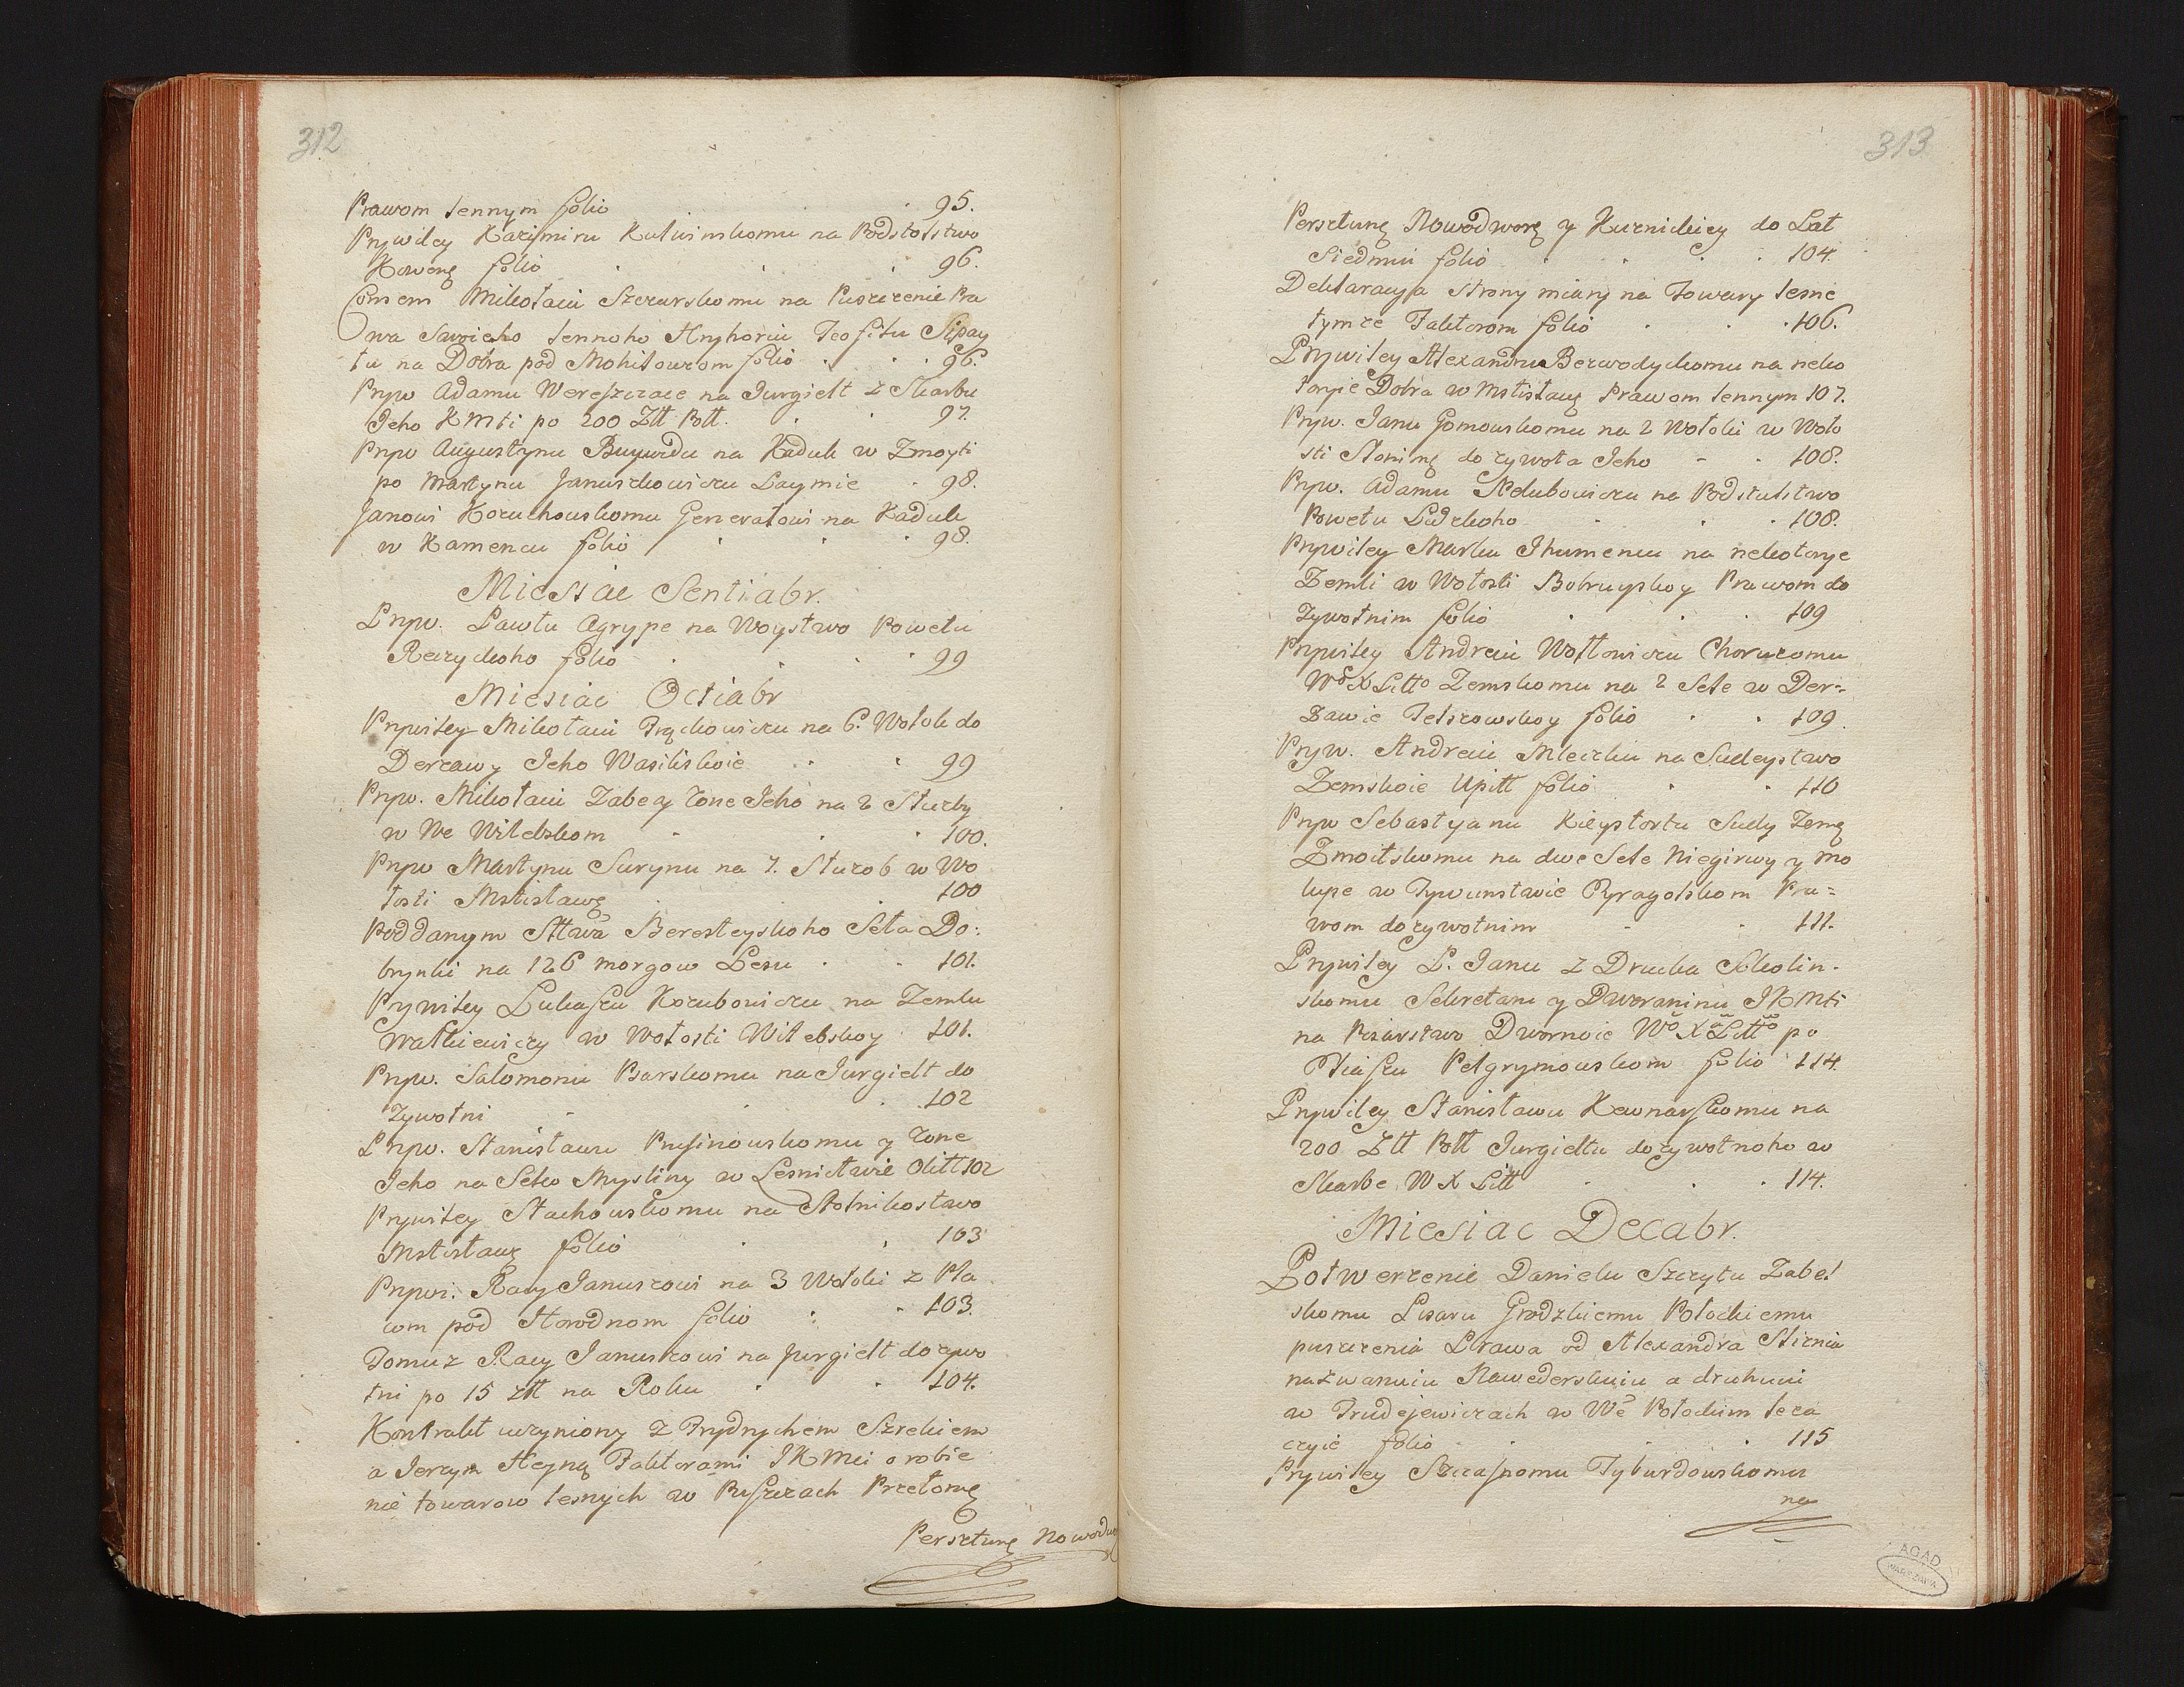 312
Prawom lennym folio 95.
Prywiley Kazimiru Kulwinskomu na Podstolstwo
Kowenę folio 96.
Consens Mikołaiu Szczurskomu na Puszczenie Pra
wa Swoieho lennoho Hryhoriu Teofilu Sipay
lu na Dobra pod Mohilowom folio 96.
Pryw Adamu Wereszczace na Jurgielt z Skarbu
Jeho KMti po 200 Złł Poll. 97.
Pryw Augustynu Buywidu na Kaduk w Zmoyti
po Martynu Januszkowiczu Laymie 98.
Janowi Kozuchowskomu Generałowi na Kaduk
w Kamencu folio 98.
Miesiac Sentiabr.
Pryw. Pawlu Agrype na Woystwo Powetu
Reczyckoho folio 99
Miesiac Octiabr
Prywiley Mikołaiu Frąckowiczu na 6. Wołok do
Derzawy Jeho Wasiliskoie 99
Pryw. Mikołaiu Zabe y Zone Jeho na 2 Służby
w We Witebskom 100.
Pryw Martynu Surynu na 7. Służob w Wo
łosti Mstisławę 100
Poddanym Sttwa Beresteyskoho Seła Do:
brynki na 126 morgow Lesu 101.
Prywiley Lukaszu Kozubowiczu na Zemlu
Watkiewiczy w Wołosti Witebskoy 101.
Pryw. Salomonu Barskomu na Jurgielt do
Zywotni 102
Pryw. Stanisławu Prusinowskomu y Zone
Jeho na Seło Mysliny w Lesnictwie Olitt 102
Prywiley Stachowskomu na Stolnikostwo
Mstisławę folio 103
Prywi. Racy Januszowi na 3 Wołoki z Pla
com pod Horodnom folio 103.
Tomuz Racy Januszowi na Jurgielt dozywo
tni po 15 złł na Roku 104.
Kontrakt uczyniony z Frydrychem Szrekiem
a Jerzym Heyną Faktorami JKMci o robie
nie towarow lesnych w Puszczach Przełomę
Persztunę Nowodwo
313
Persztunę Nowodworę y Kuznickiey do Lat
Siedmiu folio 104.
Deklaracyia strony miary na Towary lesne
tymze Faktorom folio 106.
Prywiley Alexandru Bezwodyckomu na neko
toryie Dobra w Mstisławę Prawom lennym 107.
Pryw. Janu Gomowskomu na 2 Wołoki w Woło
sti Słonimę do zywota Jeho 108.
Pryw. Adamu Holubowiczu na Podstulstwo
Powetu Lidzkoho 108.
Prywiley Marku Ihumencu na nekotorye
Zemli w Wołosti Bobruyskoy Prawom do
Zywotnim folio 109
Prywiley Andreiu Wołłowiczu Choruzomu
Wo X Litto Zemskomu na 2 Sełe w Der=
zawie Telszowskoy folio 109.
Pryw. Andreiu Mleczku na Sudeystwo
Zemskoie Upitt folio 110
Pryw Sebastyanu Kieystortu Sudy Zemę
Zmoitskomu na dwe Sełe Niegirwy y Mo
lupe w Tywunstwie Pyragolskom Pra=
wom dozywotnim 111.
Prywiley P. Janu z Drucka Sokolin-
skomu Sekretaru y Dworaninu JKMti
na Pisarstwo Dwornoie Wo X Litto po
Eliaszu Pelgrymowskom folio 114.
Prywiley Stanisławu Kownarskomu na
200 Złł Poll Jurgieltu dozywotnoho w
Skarbe W X Litt 114.
Miesiac Decabr.
Potwerzenie Danielu Szczytu Zabel
skomu Pisaru Grodzkiemu Połockiemu
puszczenia Prawa od Alexandra
nazwanuiu a druhuiu
w w We Połockim leza
czyie folio 115
Prywiley Szczasnomu Tyburdowskomu
na
AGAD
WARSZAWA